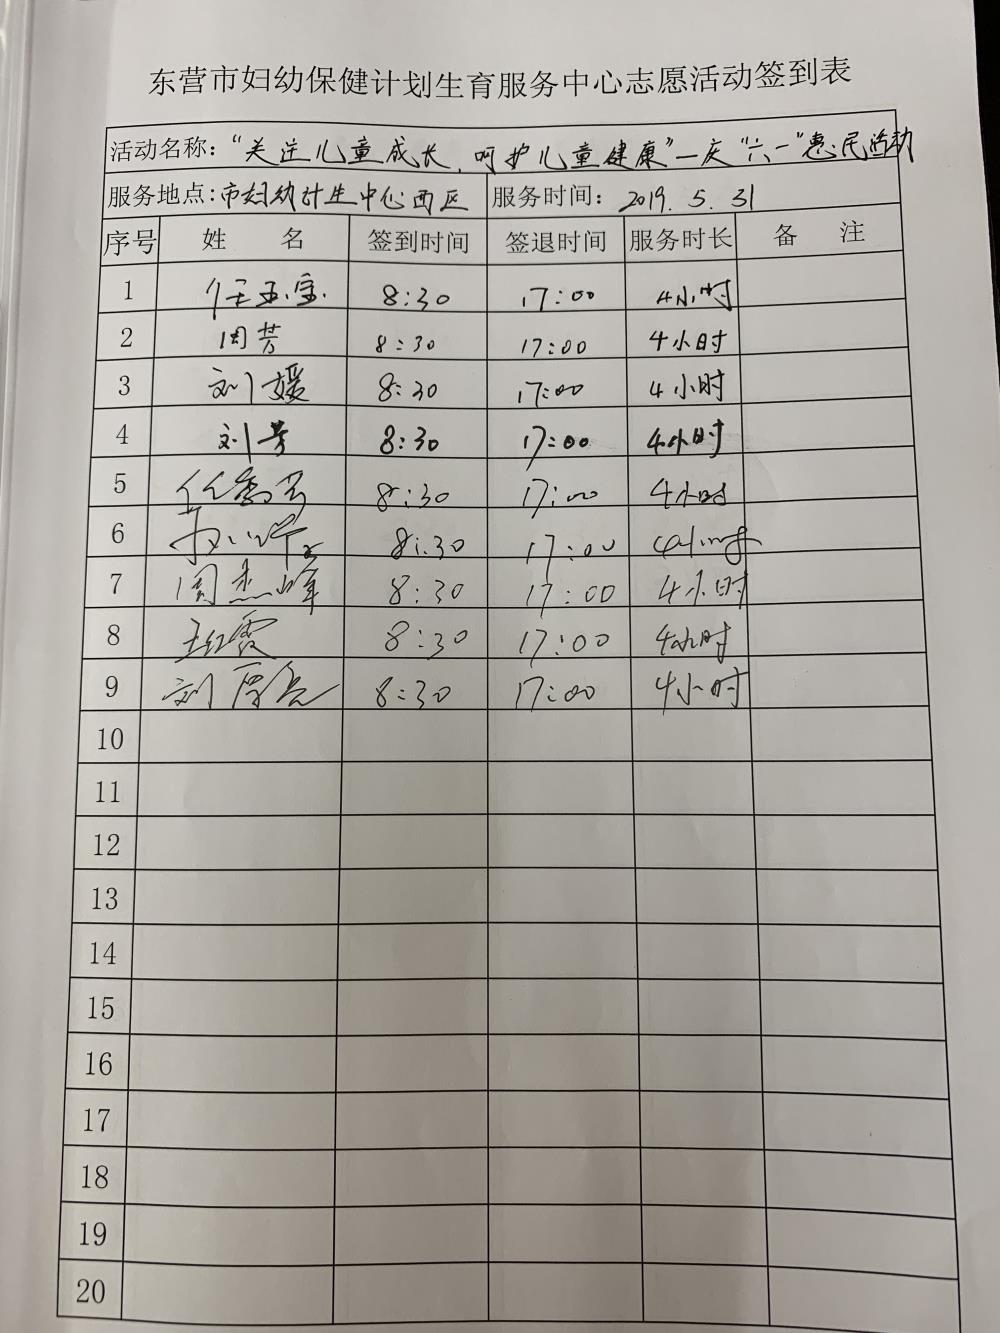 东营市妇幼保健计划生育服务中心志愿活动签到表
活动名称：“关注儿童成长、呵护儿童健康”—庆“六一”惠民活动
服务地点:市妇幼计生中心西区 服务时间：2019.5.31
序号 姓 名 签到时间 签退时间 服务时长 备 注
1 任玉宝 8:30 17:00 4小时
2 周芳 8:30 17:00 4小时
3 刘媛 8:30 17:00 4小时
4 刘芳 8:30 17:00 4小时
5 8:30 17:00 4小时
6 8:30 17:00 4小时
7 周杰峰 8:30 17:00 4小时
8 王红霞 8:30 17:00 4小时
9 刘 8:30 17:00 4小时
10
11
12
13
14
15
16
17
18
19
20